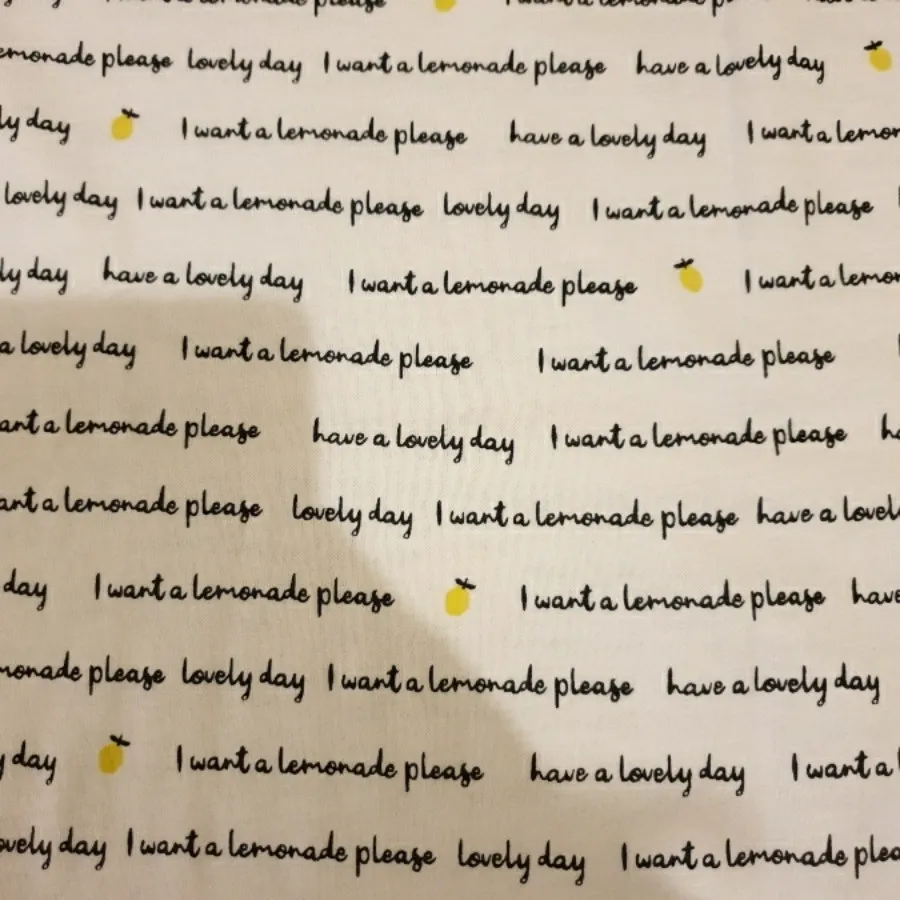 I want a lemonade please I want a lemonade
lemonade please lovely day I want a lemonade please have a lovely day
day I want a lemonade please have a lovely day I want a
lovely day I want a lemonade please lovely day I want a lemonade please
day have a lovely day I want a lemonade please I want a
a lovely day I want a lemonade please I want a lemonade please
a lemonade please have a lovely day I want a lemonade please
a lemonade please lovely day I want a lemonade please have a
day I want a lemonade please I want a lemonade please have
please lovely day I want a lemonade please have a lovely day
day I want a lemonade please have a lovely day I want a
day I want a lemonade please lovely day I want a lemonade